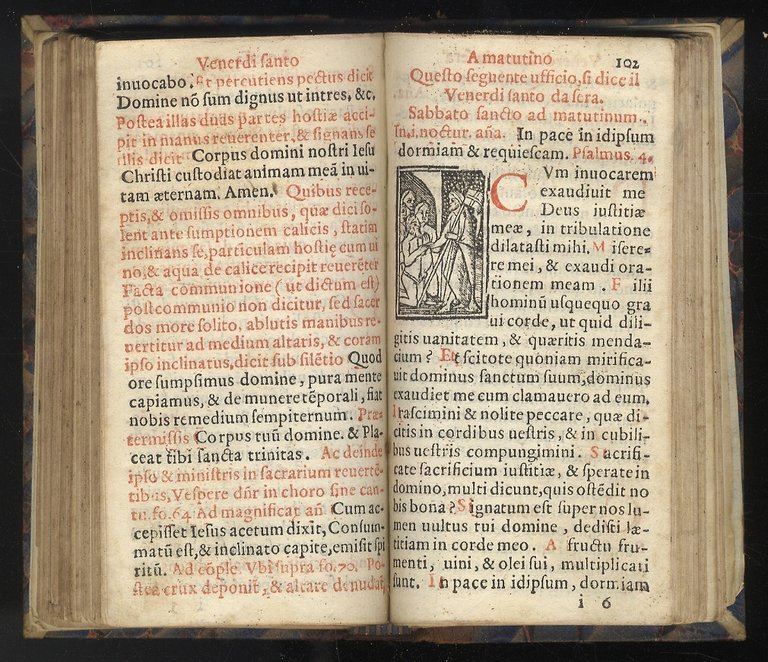 Venerdi santo
inuocabo. Et percutiens pectus dicit
Domine nõ sum dignus ut intres, &c.
Postea illas duas partes hostiæ acci-
pit in manus reuerenter, & signans se
illis dicit Corpus domini nostri Iesu
Christi custodiat animam meã in ui-
tam æternam. Amen. Quibus rece-
ptis, & omissis omnibus, quæ dici so-
lent ante sumptionem calicis, statim
inclinans se, particulam hostię cum ui
no, & aqua de calice recipit reuerẽter
Facta communione (ut dictum est)
postcommunio non dicitur, sed sacer
dos more solito, ablutis manibus re-
uertitur ad medium altaris, & coram
ipso inclinatus, dicit sub silẽtio Quod
ore sumpsimus domine, pura mente
capiamus, & de munere tẽporali, fiat
nobis remedium sempiternum. Præ-
termissis Corpus tuũ domine. & Pla-
ceat tibi sancta trinitas. Ac deinde
ipso & ministris in sacrarium reuertẽ-
tibus, Vespere dñr in choro sine can-
tu. fo. 64. Ad magnificat añ Cum ac-
cepisset Iesus acetum dixit, Consum-
matũ est, & inclinato capite, emisit spi
ritũ. Ad cõple Vbi supra fo. 70. Po-
stea crux deponit, & altare denudat
A matutino 102
Questo seguente ufficio, si dice il
Venerdi santo da sera.
Sabbato sancto ad matutinum.
In. i. noctur. aña. In pace in idipsum
dormiam & requiescam. Psalmus. 4.
CVm inuocarem
exaudiuit me
Deus iustitiæ
meæ, in tribulatione
dilatasti mihi. M isere-
re mei, & exaudi ora-
tionem meam. F ilii
hominũ usquequo gra
ui corde, ut quid dili-
gitis uanitatem, & quæritis menda-
cium? Et scitote quoniam mirifica-
uit dominus sanctum suum, dominus
exaudiet me cum clamauero ad eum.
I rascimini & nolite peccare, quæ di-
citis in cordibus uestris, & in cubili-
bus uestris compungimini. S acrifi-
cate sacrificium iustitiæ, & sperate in
domino, multi dicunt, quis ostẽdit no
bis bona? S ignatum est super nos lu-
men uultus tui domine, dedisti læ-
titiam in corde meo. A fructu fru-
menti, uini, & olei sui, multiplicati
sunt. I n pace in idipsum, dormiam
i 6